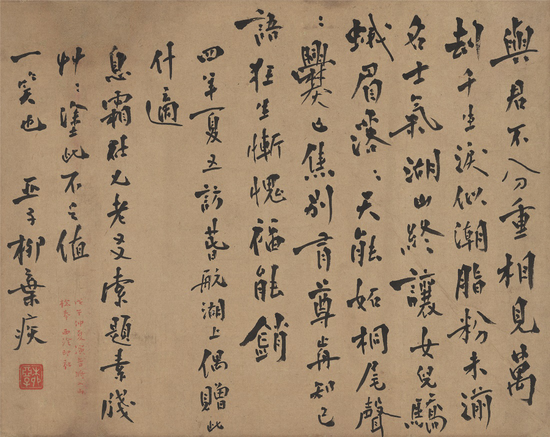 與君不分重相見萬
劫千生淚似潮脂粉未湔
名士氣湖山終讓女兒驕
蛾眉落〻天能妬桐尾聲
〻爨已焦別有尊前知己
語狂生慚愧福能銷
四年夏五訪萅航湖上偶贈此
什適
息霜社兄老友索題素牋
艸〻塗此不足值
一笑也 亞子柳棄疾